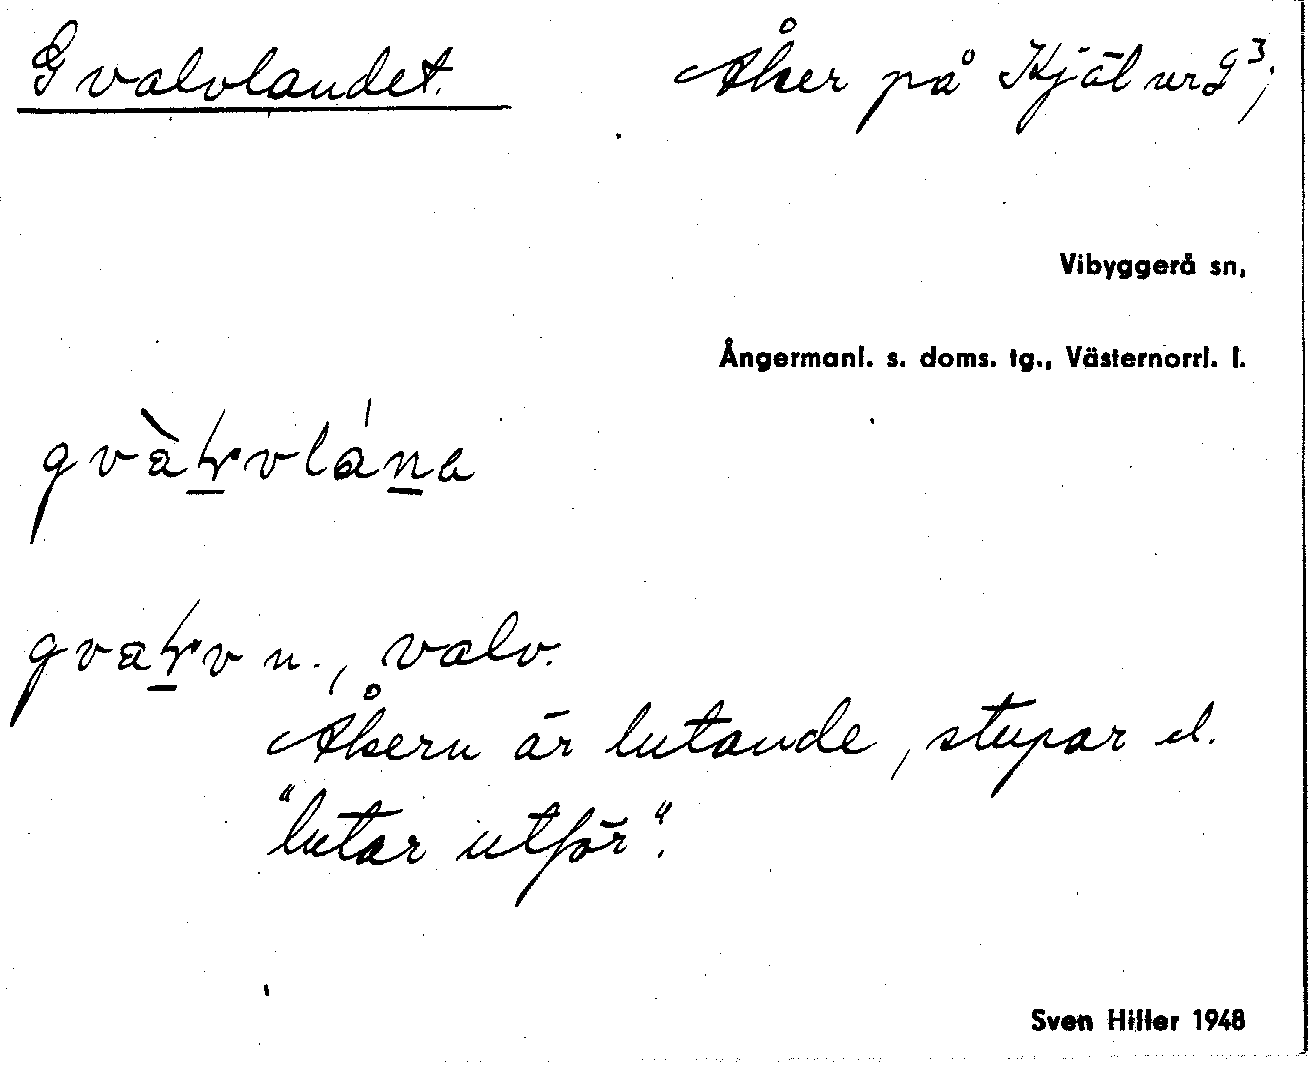 Gvalvlandet. Åker på Kjälvrg³;
Vibyggerå sn,
Ångermanl. s. doms. tg., Västernorrl. l.
n., valv.
Åkern är lutande, stupar el.
"lutar utför".
Sven Hiller 1948